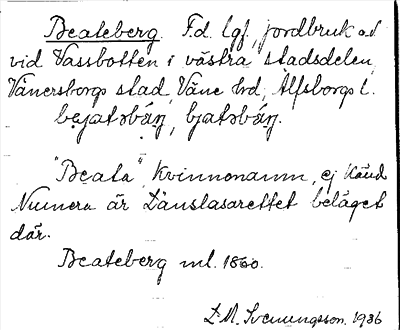 Beateberg. F.d. lgf, jordbruk o.d.
vid Vassbotten i västra stadsdelen,
Vänersborgs stad, Väne hd, Älfsborgs l.
"Beata" kvinnonamn, ej känd.
Numera är Länslasarettet beläget
där.
Beateberg ml. 1860.
D.M. Svenungsson. 1936